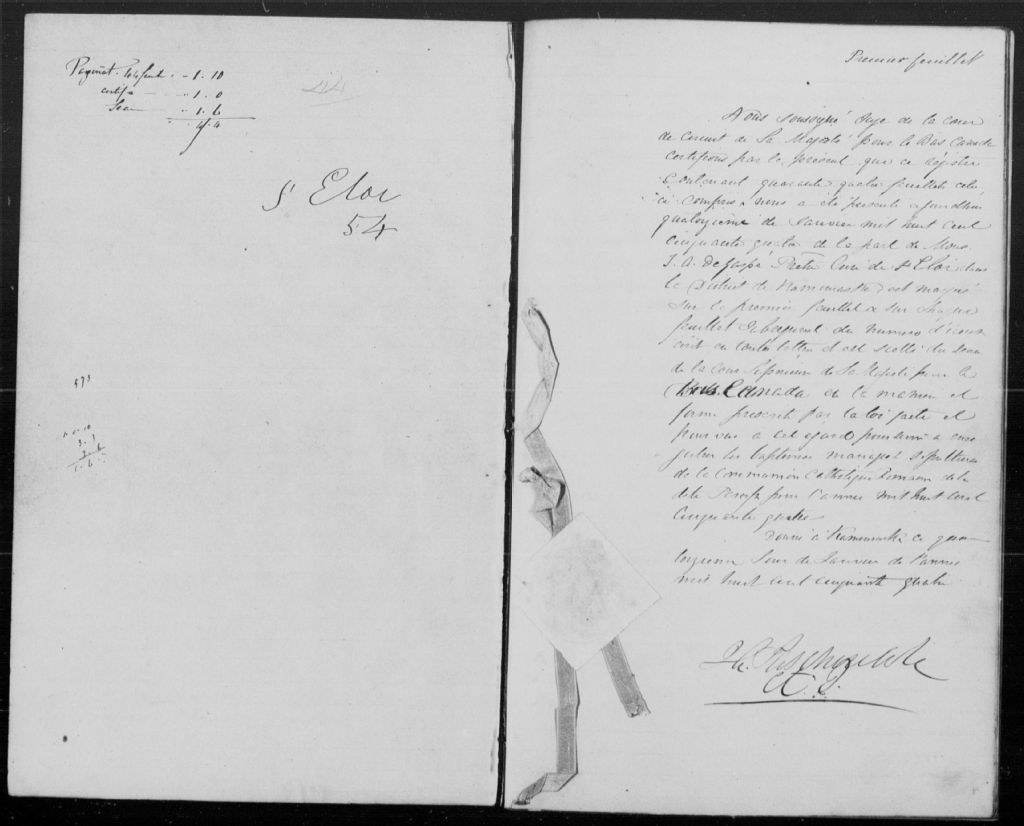 44
1.10
1.0
1.6
4.4
S Eloi
54
573
Premier feuillet
Nous soussigné Juge de la cour
de circuit de Sa Majesté pour le Bas Canada
certifions par le présent que ce régistre
Contenant quarante quatre feuillets celui
ci compris nous a été présenté aujourdhui
quatorzième de Janvier mil huit cent
cinquante quatre de la part de Mons
J. A. DeGaspé Prêtre Curé de St Eloi dans
le District de Kamouraska est marqué
sur le premier feuillet & sur chaque
feuillet subsequent du numero d'iceux
écrit en toutes lettres et est scellé du sceau
de la cour Superieure de Sa Majesté pour le
Bas Canada en la maniere et
forme prescrite par la loi faite et
pourvue à cet égard pour servir a enre
gistrer les baptêmes mariages & sépultures
de la Communion Catholique Romaine de la
dite Paroisse pour l'année mil huit cent
Cinquante quatre
Donné à Kamouraska ce qua
torzieme Jour de Janvier de l'année
mil huit cent cinquante quatre